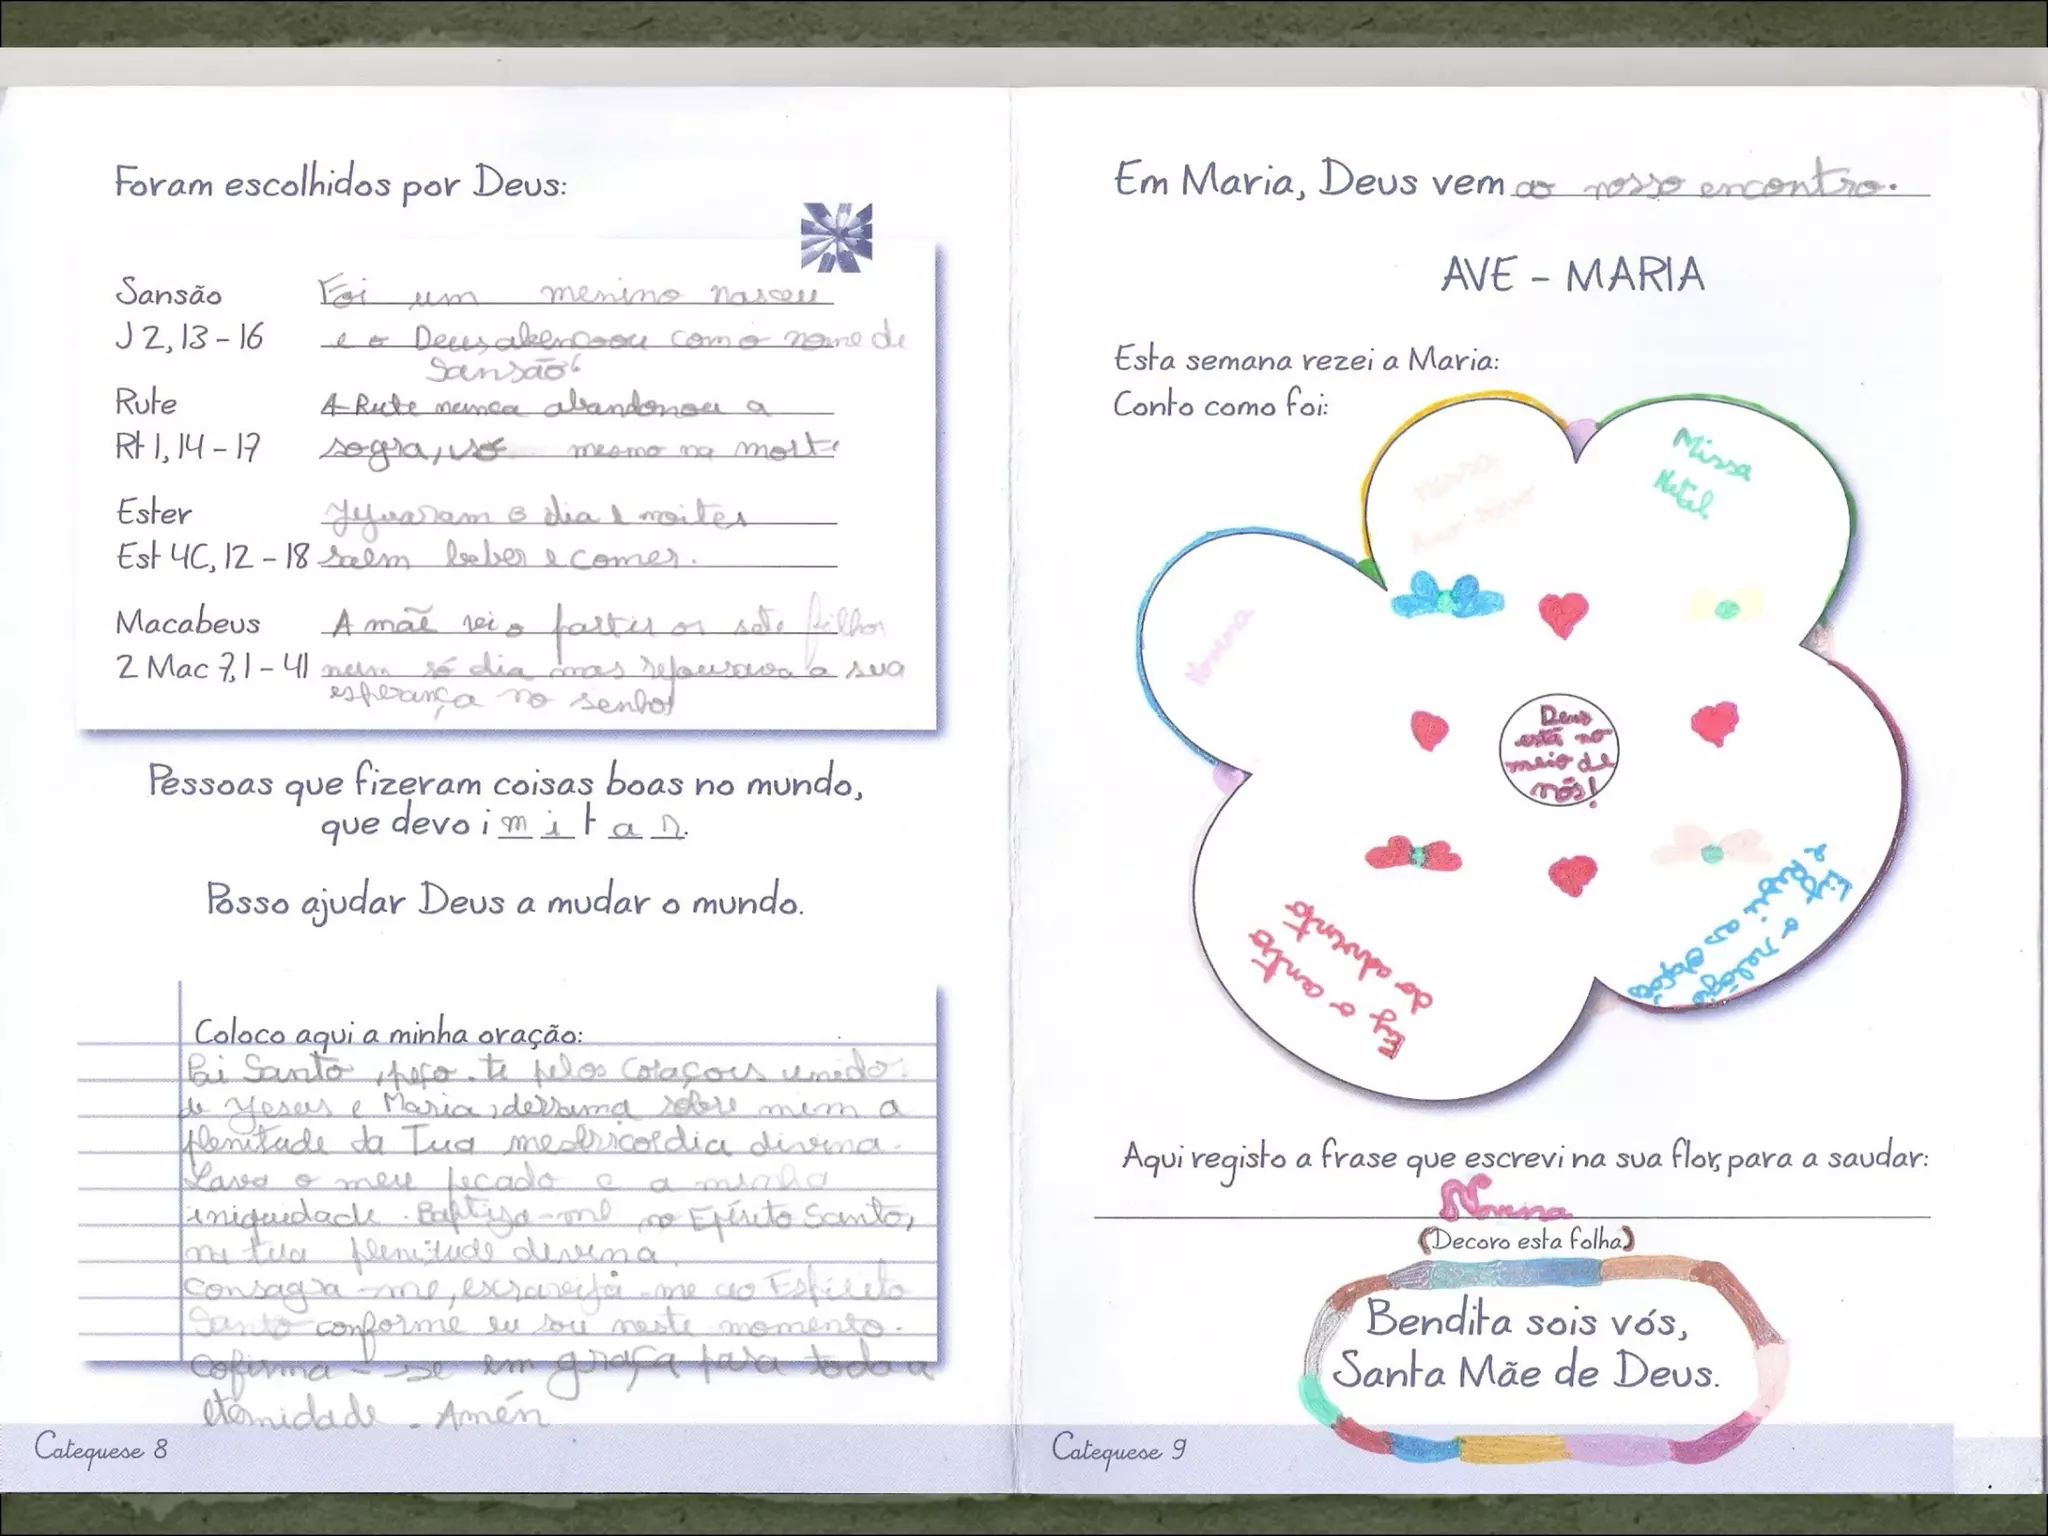 Foram escolhidos por Deus:
Sansão Foi um menino nasceu
J 2, 13 - 16 e o Deus abençoou com o nome de
Sansão
Rute A Rute nunca abandonou a
Rt 1, 14 - 17 sogra, só mesmo na morte
Ester Jejuaram 3 dia e noites
Est 4C, 12 - 18 saem beber e comer.
Macabeus A mãe vio partir os sete filhos
2 Mac 7, 1 - 41 num só dia mas repousava a sua
esperança no senhor
Pessoas que fizeram coisas boas no mundo,
que devo i m i t a r.
Posso ajudar Deus a mudar o mundo.
Coloco aqui a minha oração:
Pai Santo, peço-te pelos corações unidos
de Jesus e Maria, derrama sobre mim a
plenitude da Tua mesiricordia divina.
Lava o meu pecado e a minha
iniquidade. Baptiza-me no Epírito Santo,
na tua plenitude divina.
Consagra-me, me ao Espírito
Santo conforme eu sou neste momento.
Cofirma-se em graça para toda a
eternidade. Amén
Catequese 8
Em Maria, Deus vem ao nosso encontro.
AVE - MARIA
Esta semana rezei a Maria:
Conto como foi:
Missa
Ano Novo
Missa
Natal
Novena
Deus
está no
meio de
nós!
Fiz o relógio
e Rezei as
Fiz o canto
do advento
Aqui registo a frase que escrevi na sua flor, para a saudar:
Novena
(Decoro esta folha)
Bendita sois vós,
Santa Mãe de Deus.
Catequese 9